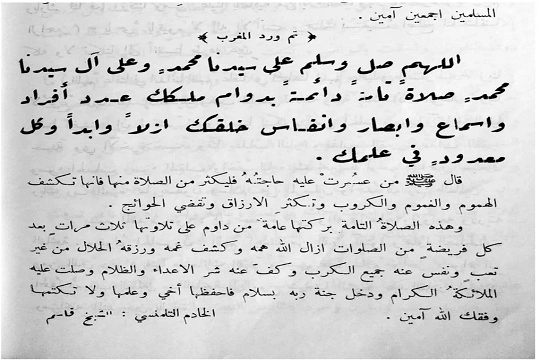 المسلمين اجمعين آمين .
﴿ تم ورد المغرب ﴾
اللهم صل وسلم على سيدنا محمدٍ وعلى آل سيدنا
محمدٍ صلاةً تامةً دائمةً بدوام ملكك عدد أفراد
واسماع وابصار وانفاس خلقك ازلاً وابداً وكل
معدودٍ في علمك .
قال ﷺ من عسُرتْ عليه حاجتُهُ فليكثر من الصلاة منها فانها تكشف
الهموم والغموم والكروب وتكثر الارزاق وتقضي الحوائج .
وهذه الصلاةُ التامة بركتها عامة من داوم على تلاوتها ثلاث مرات بعد
كل فريضة من الصلوات ازال الله همه وكشف غمه ورزقهُ الحلال من غير
تعب ونفس عنه جميع الكرب وكفَّ عنه شر الاعداء والظلام وصلت عليه
الملائكةُ الكرام ودخل جنة ربه بسلام فاحفظها أخي وعلمها ولا تكتمها
وفقك الله آمين . الخادم التلمنسي : الشيخ قاسم